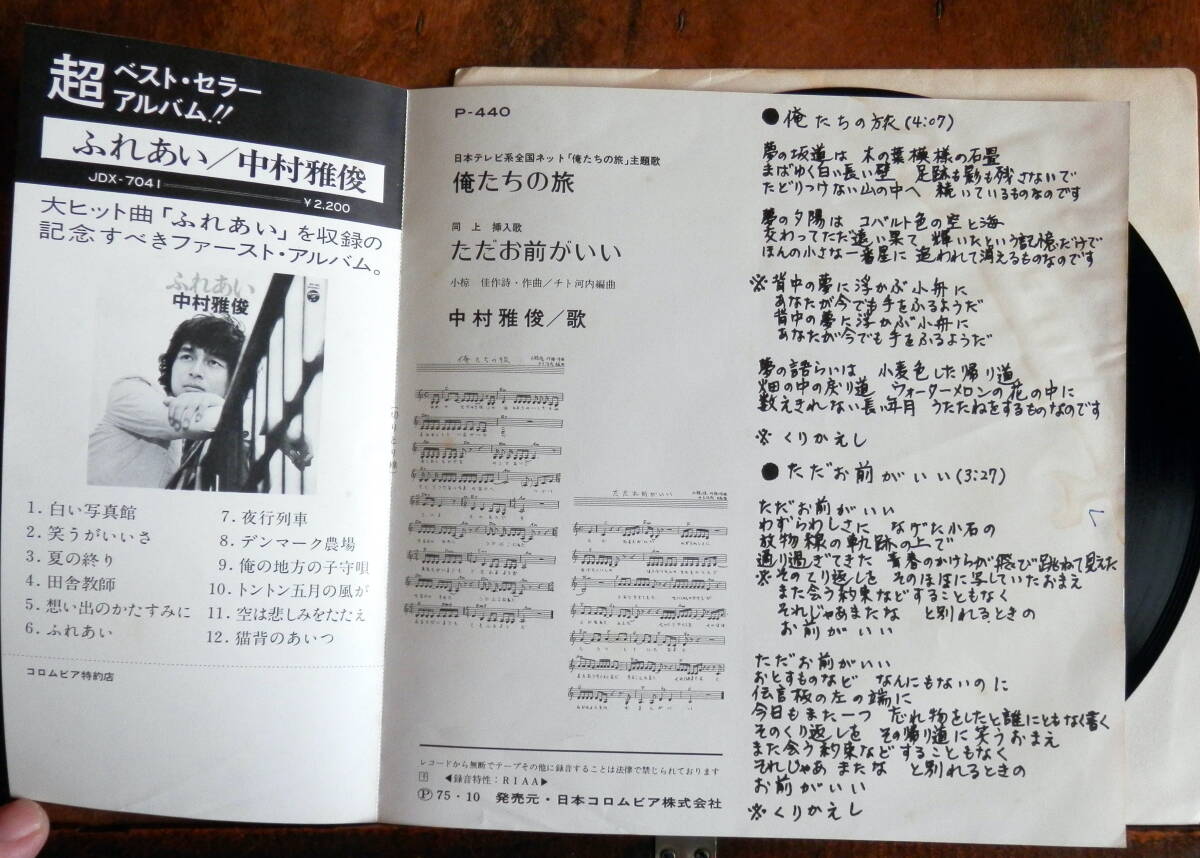 超 ベスト・セラー
アルバム!!
ふれあい/中村雅俊
JDX-7041
¥2,200
大ヒット曲「ふれあい」を収録の
記念すべきファースト・アルバム。
ふれあい
中村雅俊
1. 白い写真館
2. 笑うがいいさ
3. 夏の終り
4. 田舎教師
5. 想い出のかたすみに
6. ふれあい
7. 夜行列車
8. デンマーク農場
9. 俺の地方の子守唄
10. トントン五月の風が
11. 空は悲しみをたたえ
12. 猫背のあいつ
コロムビア特約店
P-440
日本テレビ系全国ネット「俺たちの旅」主題歌
俺たちの旅
同 上 挿入歌
ただお前がいい
小椋 佳作詩・作曲/チト河内編曲
中村雅俊/歌
俺たちの旅
ただお前がいい
レコードから無断でテープその他に録音することは法律で禁じられております
◀録音特性:RIAA▶
Ⓟ75・10 発売元・日本コロムビア株式会社
●俺たちの旅(4:07)
夢の坂道は 木の葉模様の石畳
まばゆく白い長い壁 足跡も影も残さないで
たどりつけない山の中へ 続いているものなのです
夢の夕陽は コバルト色の空と海
交わってただ遠い果て 輝いたという記憶だけで
ほんの小さな一番星に 追われて消えるものなのです
※背中の夢に浮かぶ小舟に
あなたが今でも手をふるようだ
背中の夢に浮かぶ小舟に
あなたが今でも手をふるようだ
夢の語らいは 小麦色した帰り道
畑の中の戻り道 ウォーターメロンの花の中に
数えきれない長い年月 うたたねをするものなのです
※くりかえし
●ただお前がいい(3:27)
ただお前がいい
わずらわしさに なげた小石の
放物線の軌跡の上で
通り過ぎてきた 青春のかけらが飛び跳ねて見えた
※そのくり返しを そのほほに写していたおまえ
また会う約束などすることもなく
それじゃあまたな と別れるときの
お前がいい
ただお前がいい
おとすものなど なんにもないのに
伝言板の左の端に
今日もまた一つ 忘れ物をしたと誰にともなく書く
そのくり返しを その帰り道に笑うおまえ
また会う約束などすることもなく
それじゃあ またな と別れるときの
お前がいい
※くりかえし